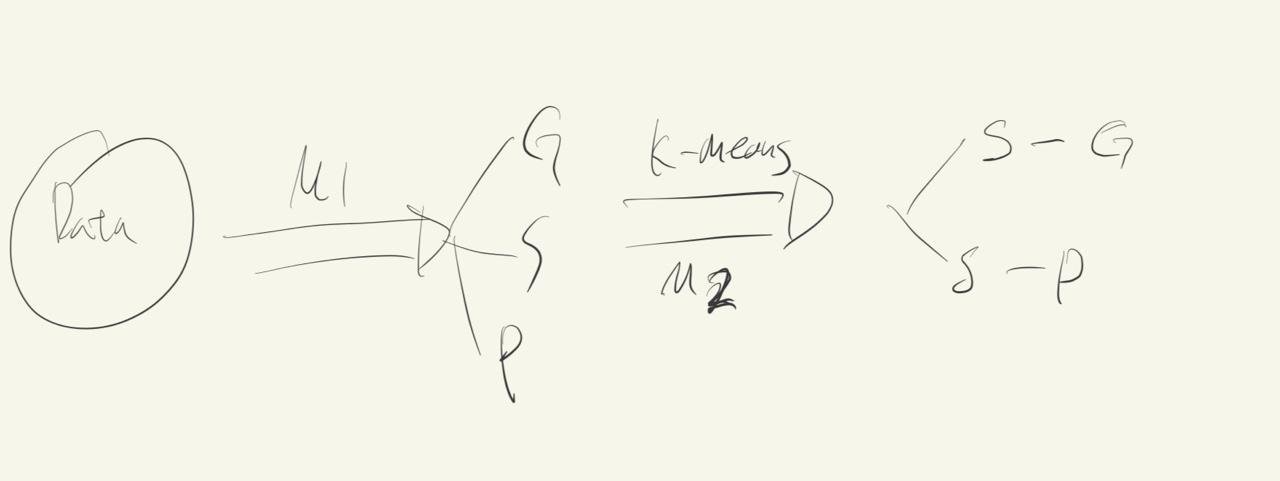 Data
M1
G
S
P
K-means
M2
S - G
S - P